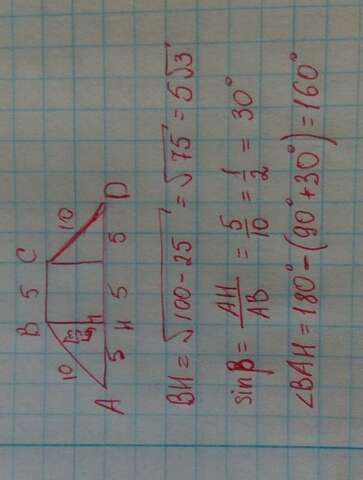 B 5 C
10 10
A 5 H 5 5 D
BH = √100-25 = √75 = 5√3
sinB = AH/AB = 5/10 = 1/2 = 30°
∠BAH = 180° - (90° + 30°) = 160°